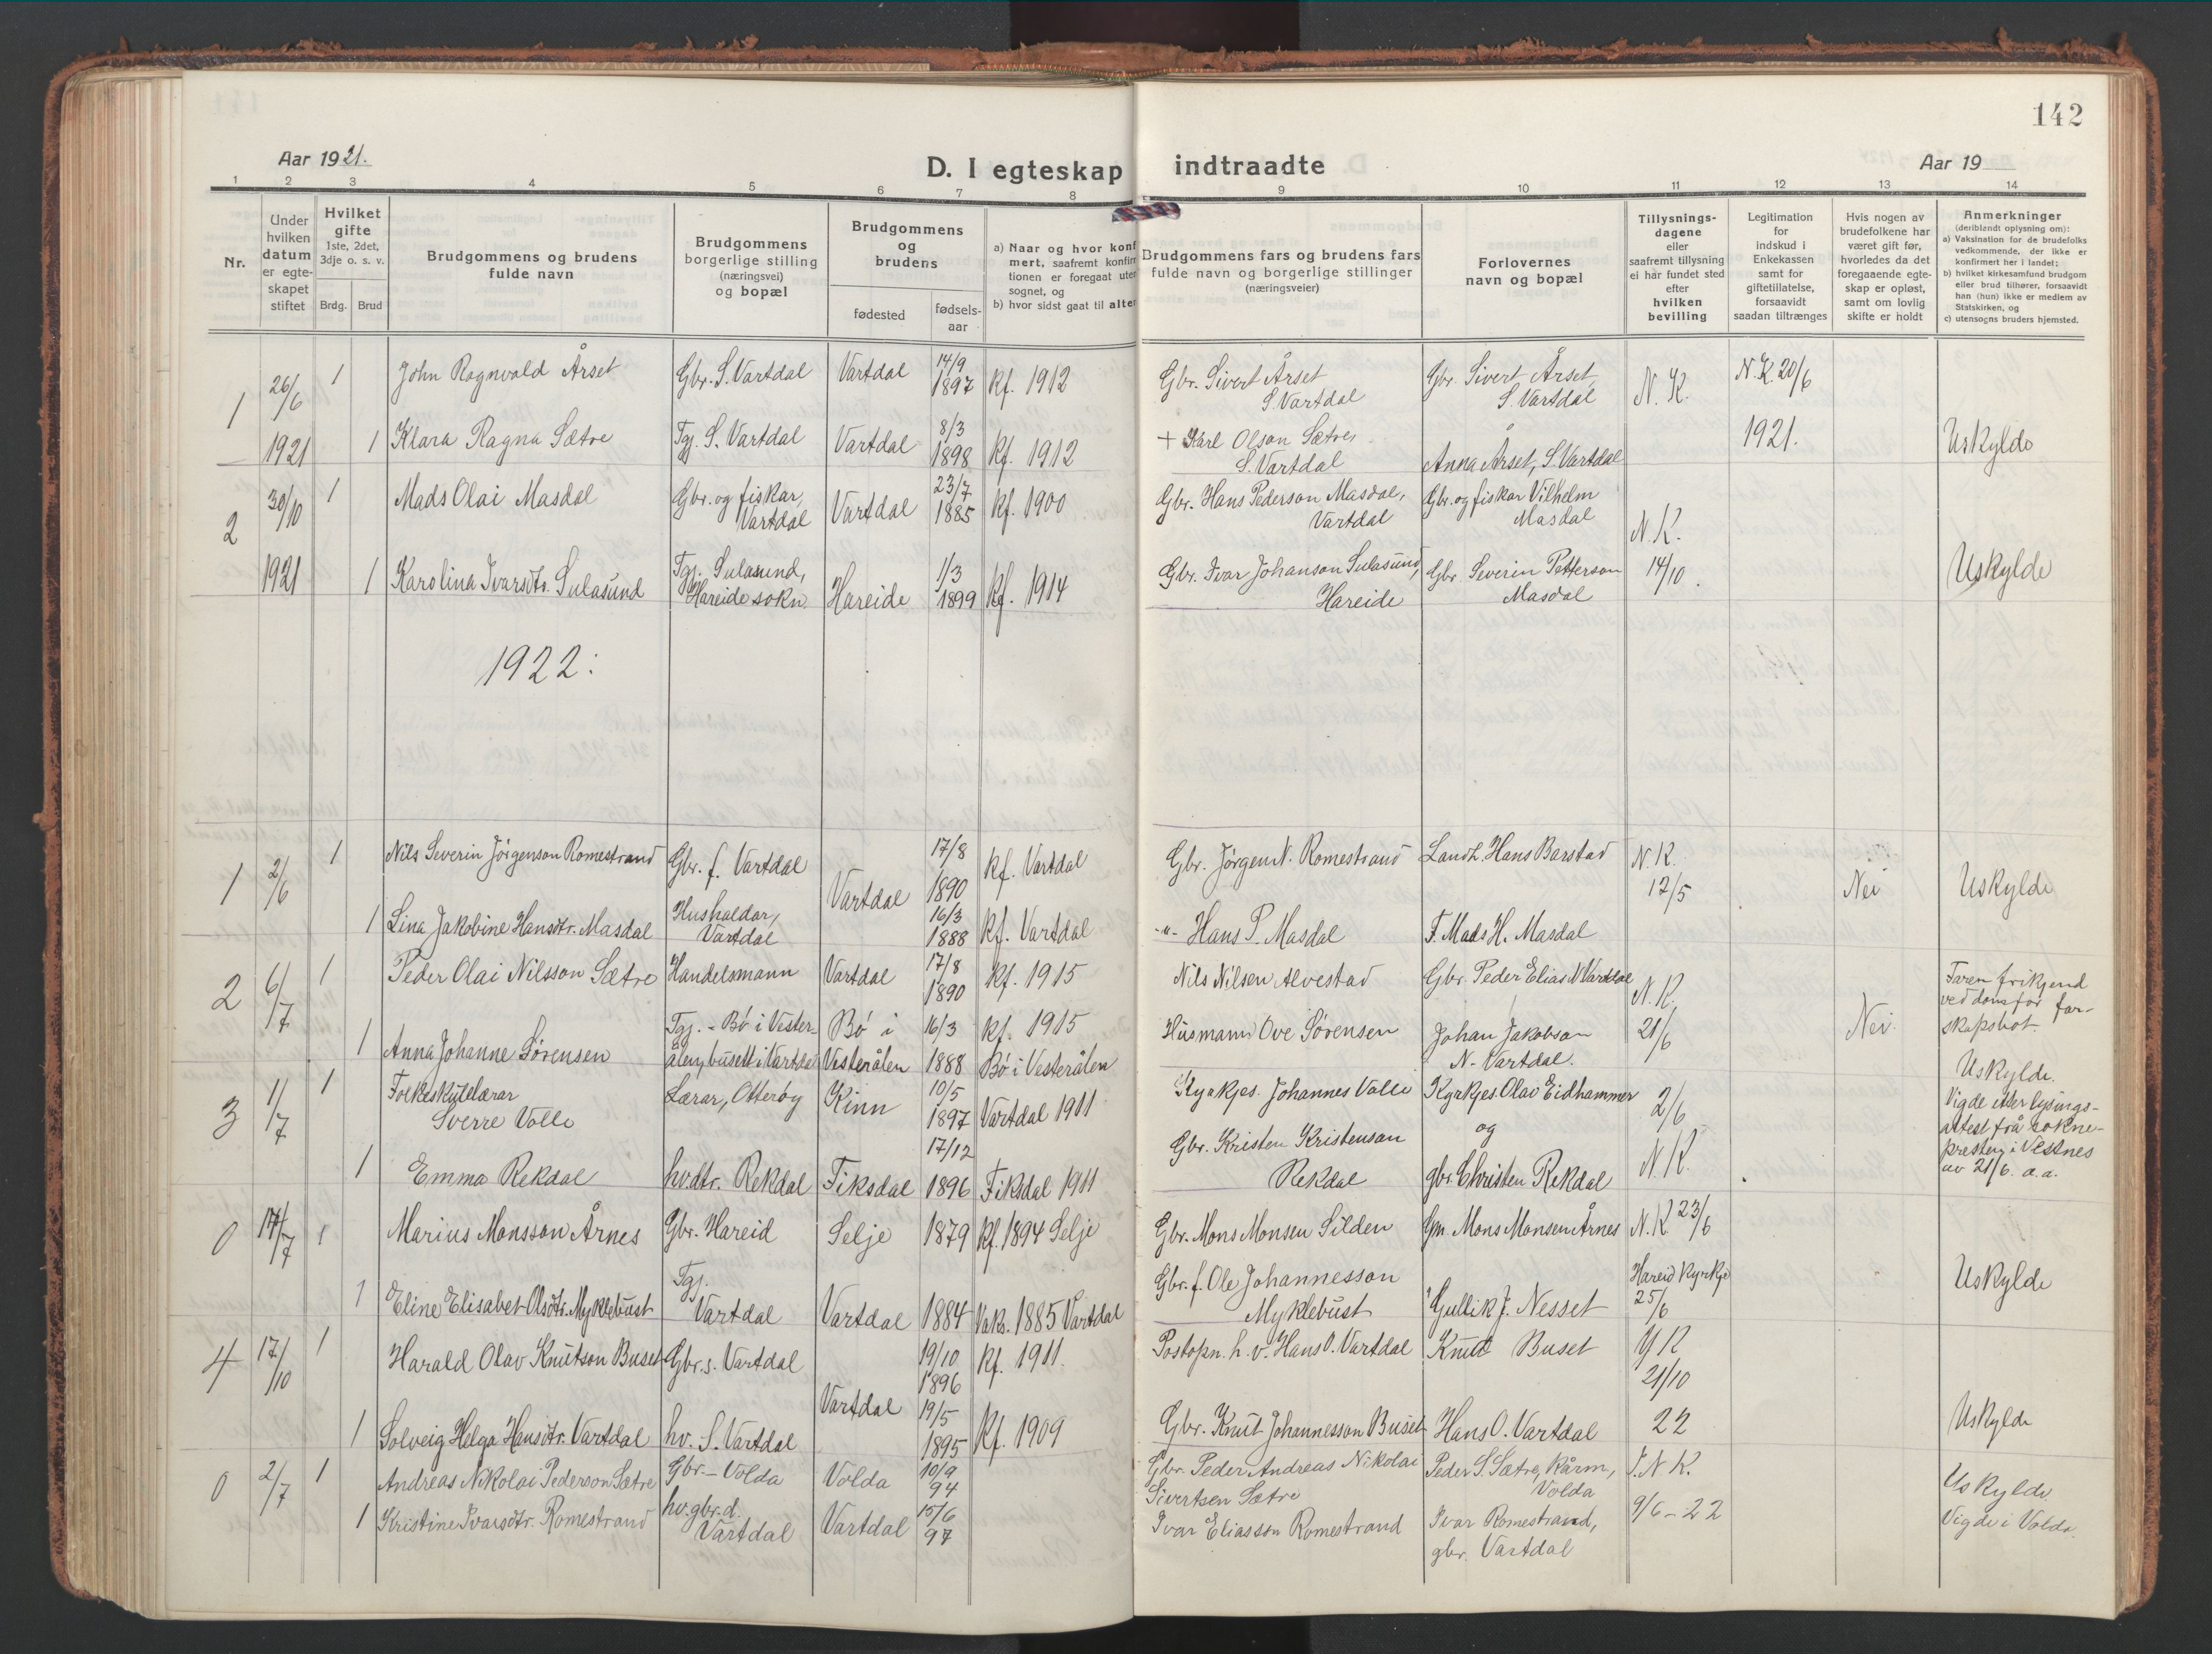 142
Aar 1921.
D. I egteskap indtraadte
Aar 19
1 2 3 4 5 6 7 8 9 10 11 12 13 14
Nr.
Under hvilken datum er egte-skapet stiftet
Hvilket gifte 1ste, 2det, 3dje o. s. v.
Brdg. Brud
Brudgommens og brudens fulde navn
Brudgommens borgerlige stilling (næringsvei) og bopæl
Brudgommens og brudens
fødested
fødsels-aar
a) Naar og hvor konf
mert, saafremt konfir
tionen er foregaat uten
sognet, og
b) hvor sidst gaat til alter
Brudgommens fars og brudens fars fulde navn og borgerlige stillinger (næringsveier)
Forlovernes navn og bopæl
Tillysnings-dagene eller saafremt tillysning ei har fundet sted efter hvilken bevilling
Legitimation for indskud i Enkekassen samt for giftetillatelse, forsaavidt saadan tiltrænges
Hvis nogen av brudefolkene har været gift før, hvorledes da det foregaaende egte-skap er opløst, samt om lovlig skifte er holdt
Anmerkninger
(deriblandt oplysning om):
a) Vaksination for de brudefolks vedkommende, der ikke er konfirmert her i landet;
b) hvilket kirkesamfund brudgom eller brud tilhører, forsaavidt han (hun) ikke er medlem av Statskirken, og
c) utensogns bruders hjemsted.
1 26/6 1 John Ragnvald Årset Gbr. S. Vartdal Vartdal 14/9 1897 Kf. 1912 Gbr. Sivert Årset S. Vartdal Gbr. Sivert Årset, S. Vartdal N. K. N. K. 20/6
1921 1 Klara Ragna Sætre Tgj. S. Vartdal Vartdal 8/3 1898 Kf. 1912 + Karl Olson Sætre, S. Vartdal Anna Årset, S. Vartdal 1921. Uskylde
2 30/10 1 Mads Olai Masdal Gbr. og fiskar, Vartdal Vartdal 23/7 1885 Kf. 1900 Gbr. Hans Pederson Masdal, Vartdal Gbr. og fiskar Vilhelm Masdal N. K.
1921 1 Karolina Ivarsdtr. Sulasund Tgj. Sulasund, Hareide sokn Hareide 1/3 1899 Kf. 1914 Gbr. Ivar Johanson Sulasund, Hareide Gbr. Severin Petterson Masdal 14/10. Uskylde
1922:
1 2/6 1 Nils Severin Jörgenson Romestrand Gbr. f. Vartdal Vartdal 17/8 1890 Kf. Vartdal Gbr. Jørgen N. Romestrand Landh. Hans Barstad N. K. 12/5 Nei Uskylde
1 Lina Jakobine Hansdtr. Masdal Hushaldar, Vartdal 16/3 1888 Kf. Vartdal -"- Hans P. Masdal F. Mads H. Masdal
2 6/7 1 Peder Olai Nilsson Sætre Handelsmann Vartdal 17/8 1890 Kf. 1915 Nils Nilsen Alvestad Gbr. Peder Elias N Vartdal N. K. Faren frikjend ved dom for far-skapsbot.
1 Anna Johanne Sörensen Tgj. - Bö i Vester-ålen, busett i Vartdal Bö i Vesterålen 16/3 1888 Kf. 1915 Bö i Vesterålen Husmann Ove Sörensen Johan Jakobson N-Vartdal. 21/6 Nei. Uskylde.
3 1/7 1 Folkeskulelærar Sverre Valle Lærar, Otteröy Kinn 10/5 1897 Vartdal 1911 Kyrkjes. Johannes Valle Kyrkjes. Olav Eidhammer og 2/6 Vigde etter lysings-attest frå sokne-presten i Vestnes av 21/6. a.a.
1 Emma Rekdal hv.dtr. Rekdal Fiksdal 17/12 1896 Fiksdal 1911 Gbr. Kristen Kristenson Rekdal gbr. Christen Rekdal N. K.
0 14/7 1 Marius Monsson Årnes Gbr. Hareid Selje 1879 Kf. 1894 Selje Gbr. Mons Monsen Silden Gm. Mons Monsen Årnes N. K. 23/6
1 Eline Elisabet Olsdtr. Myklebust Tgj. Vartdal Vartdal 1884 Vaks. 1885 Vartdal Gbr. f. Ole Johannesson Myklebust Gullik J. Nesset Hareid Kyrkje 25/6 Uskylde
4 17/10 1 Harald Olav Knutson Buset Gbr. s. Vartdal Vartdal 19/10 1896 Kf. 1911. Postopn. h. v. Hans O. Vartdal Knut Buset 21/10
1 Solveig Helga Hansdtr. Vartdal hv. S. Vartdal 19/5 1895 Kf. 1909 Gbr. Knut Johannesson Buset Hans O. Vartdal 22 Uskylde
0 2/7 1 Andreas Nikolai Pederson Sætre Gbr. - Volda Volda 10/9 94 Gbr. Peder Andreas Nikolai Sivertsen Sætre Peder S. Sætre, Kårm., Volda N. K. Uskylde.
1 Kristine Ivarsdtr. Romestrand hv. gbr. d. Vartdal Vartdal 15/6 97 Ivar Eliasson Romestrand Ivar Romestrand, gbr. Vartdal 9/6-22 Vigde i Volda.